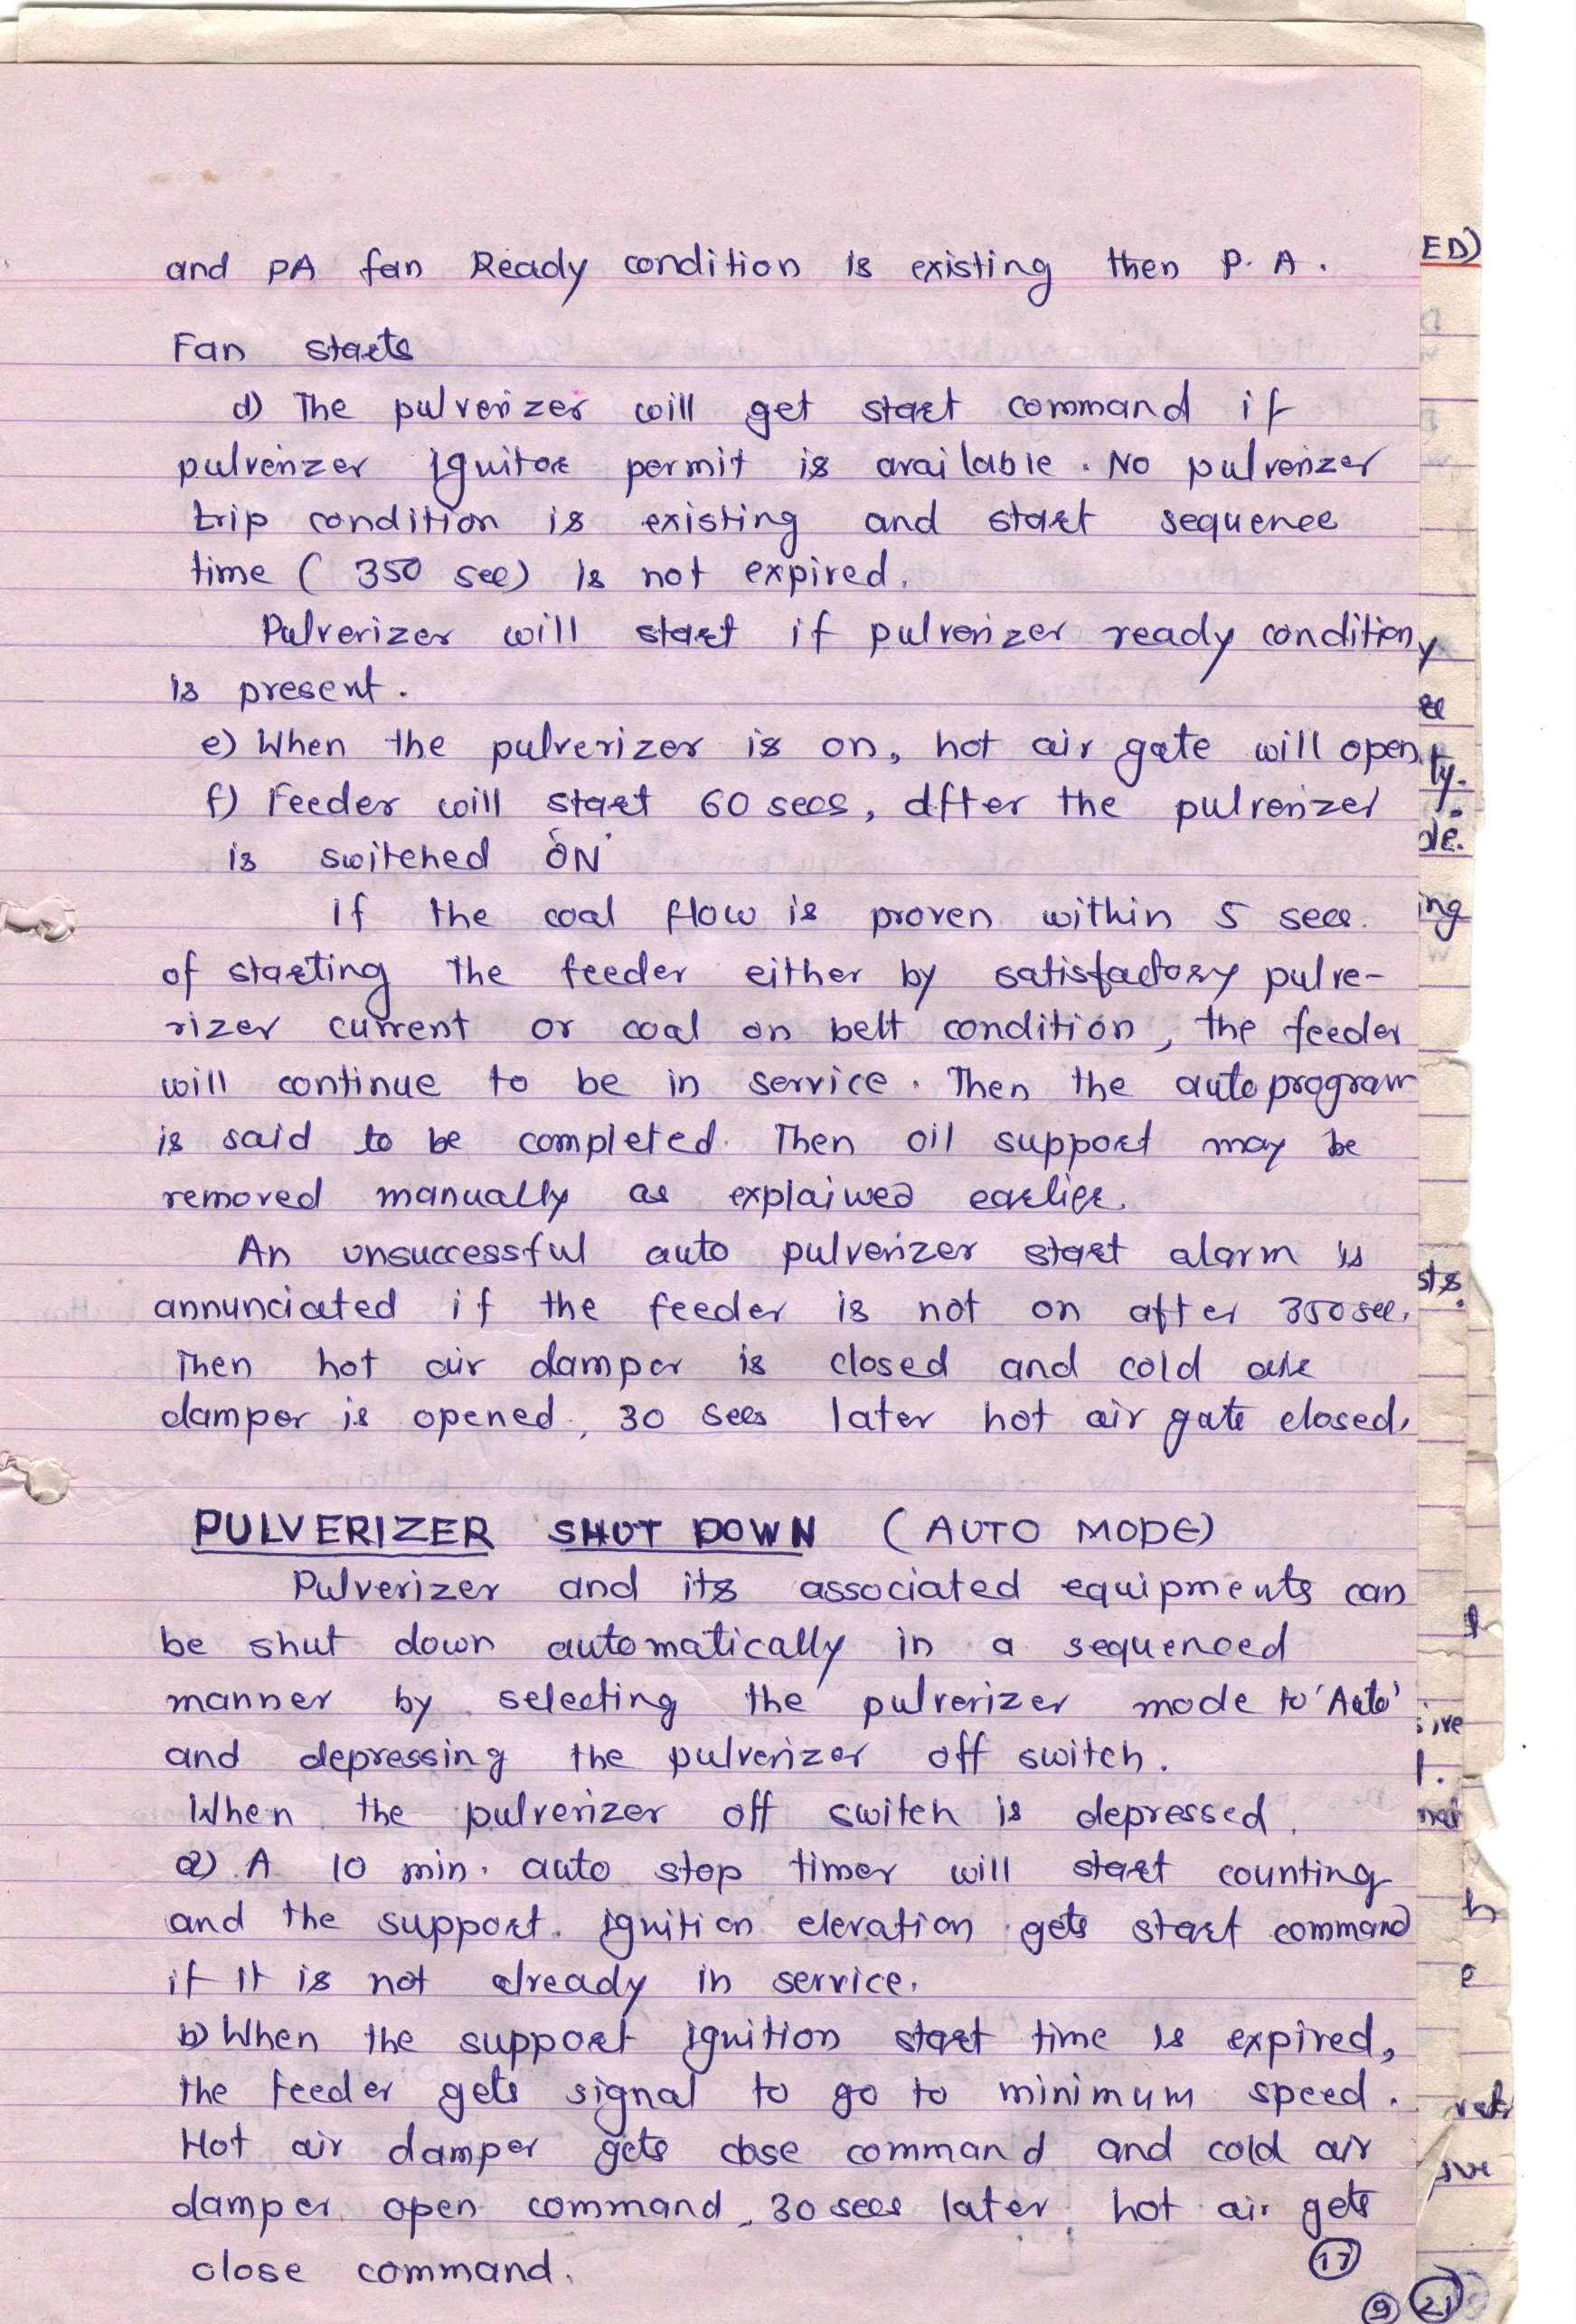 and PA fan Ready condition is existing then P.A.
Fan starts
d) The pulverizer will get start command if
pulverizer ignitor permit is available. No pulverizer
trip condition is existing and start sequence
time (350 sec) is not expired.
Pulverizer will start if pulverizer ready condition
is present.
e) When the pulverizer is on, hot air gate will open.
f) Feeder will start 60 secs, after the pulverizer
is switched 'ON'
If the coal flow is proven within 5 secs.
of starting the feeder either by satisfactory pulve-
rizer current or coal on belt condition, the feeder
will continue to be in service. Then the auto program
is said to be completed. Then oil support may be
removed manually as explained earlier.
An unsuccessful auto pulverizer start alarm is
annunciated if the feeder is not on after 350 sec.
Then hot air damper is closed and cold air
damper is opened, 30 secs later hot air gate closed.
PULVERIZER SHUT DOWN (AUTO MODE)
Pulverizer and its associated equipments can
be shut down automatically in a sequenced
manner by selecting the pulverizer mode to 'Auto'
and depressing the pulverizer off switch.
When the pulverizer off switch is depressed.
a) A 10 min. auto stop timer will start counting
and the support ignition elevation gets start command
if it is not already in service.
b) When the support ignition start time is expired,
the feeder gets signal to go to minimum speed.
Hot air damper gets close command and cold air
damper open command, 30 secs later hot air gets
close command.
17
9 21
ED)
y
ty.
de.
ing
sts.